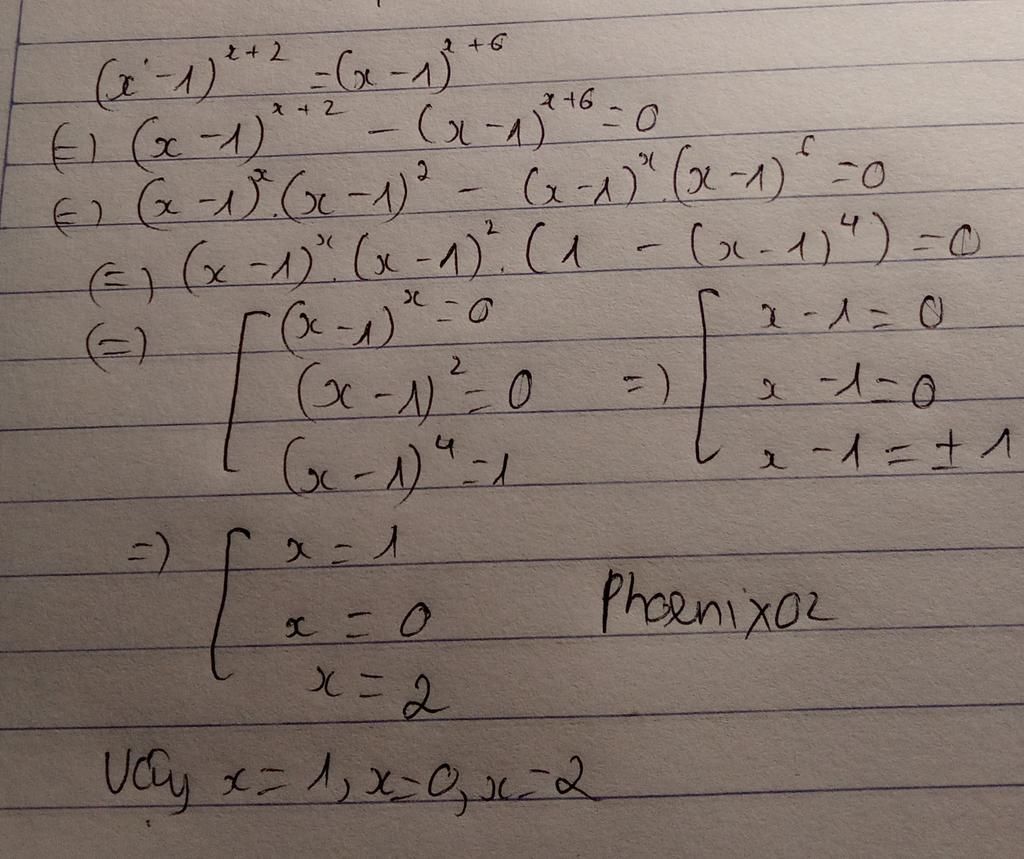 (x - 1)^{x+2} = (x - 1)^{x+6}
(=) (x - 1)^{x+2} - (x - 1)^{x+6} = 0
(=) (x - 1)^x . (x - 1)^2 - (x - 1)^x . (x - 1)^6 = 0
(=) (x - 1)^x . (x - 1)^2 . (1 - (x - 1)^4) = 0
(=) [ (x - 1)^x = 0 [ x - 1 = 0
(x - 1)^2 = 0 => x - 1 = 0
(x - 1)^4 = 1 x - 1 = ± 1
=) [ x = 1
x = 0 Phoenix02
x = 2
Vậy x = 1, x = 0, x = 2